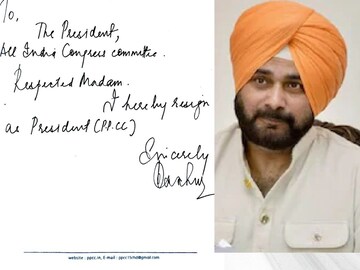 To,
The President,
All India Congress committee.
Respected Madam.
I hereby resign
as President (PPCC)
Sincerely
website : ppcc.in, E-mail :